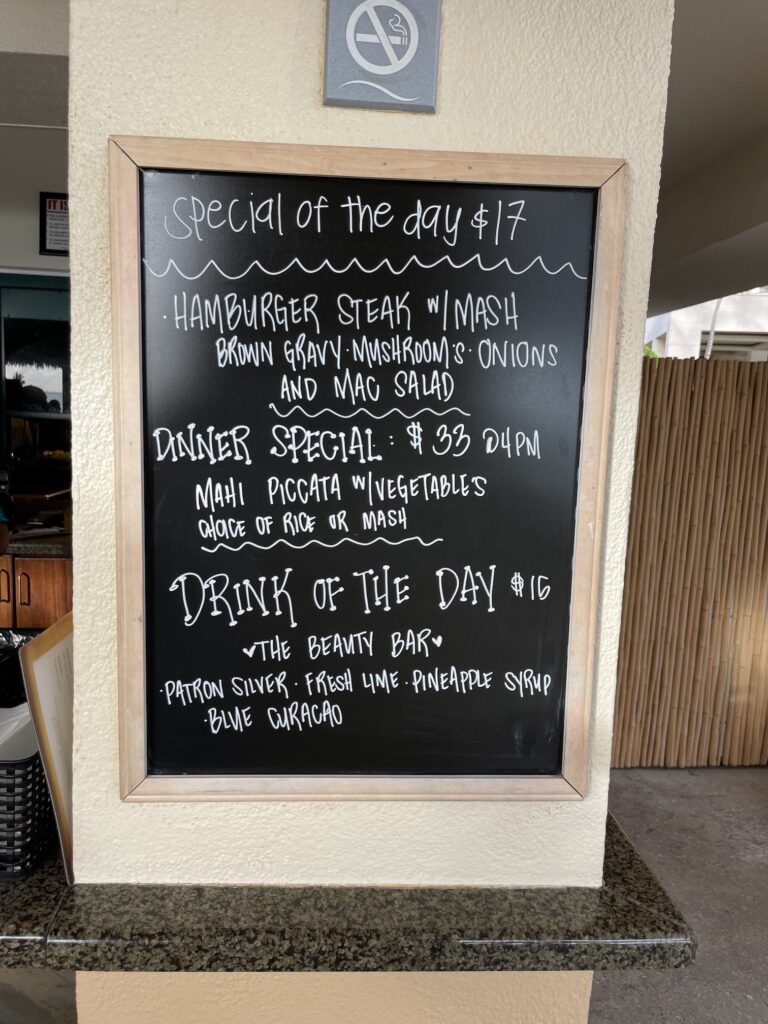 IT IS
Special of the day $17
· HAMBURGER STEAK w/ MASH
BROWN GRAVY · MUSHROOM'S · ONIONS
AND MAC SALAD
DINNER SPECIAL : $33 @4PM
MAHI PICCATA w/ VEGETABLES
CHOICE OF RICE OR MASH
DRINK OF THE DAY $16
♥THE BEAUTY BAR♥
· PATRON SILVER · FRESH LIME · PINEAPPLE SYRUP
· BLUE CURACAO